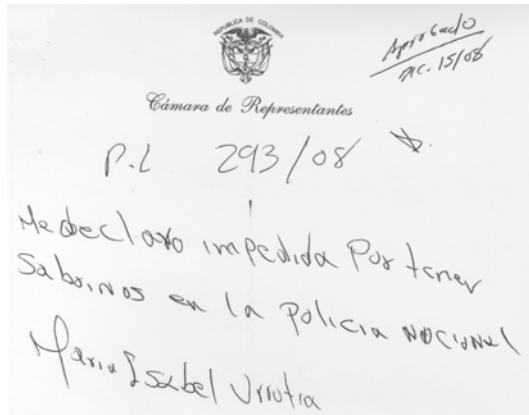 REPUBLICA DE COLOMBIA
Aprobado
Dic. 15/08
Cámara de Representantes
P.L 293/08
Me declaro impedida Por tener
Sobrinos en la Policia Nacional
Maria Isabel Urrutia